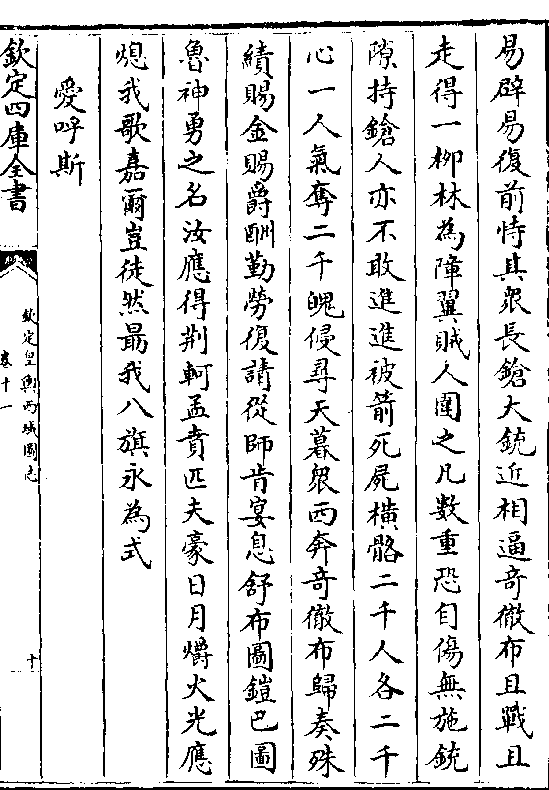 易辟易復前恃其衆長鎗大銃近相逼竒徹布且戰且
走得一柳林為障翼賊人圍之凡數重恐自傷無施銃
隙持鎗人亦不敢進進被箭死屍橫骼二千人各二千
心一人氣奪二千魄侵尋天暮衆西奔竒徹布歸奏殊
績賜金賜爵酬勤勞復請從師肯宴息舒布圖鎧巴圖
魯神勇之名汝應得荆軻孟賁匹夫豪日月爝火光應
熄我歌嘉爾豈徒然朂我八旗永為式
愛呼斯
欽定四庫全書
欽定皇輿西域圖志
卷十一
十